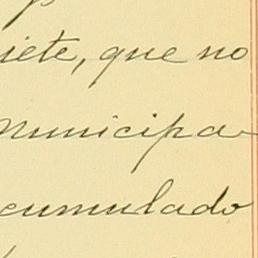 iete, que no
municipa-
cumulado